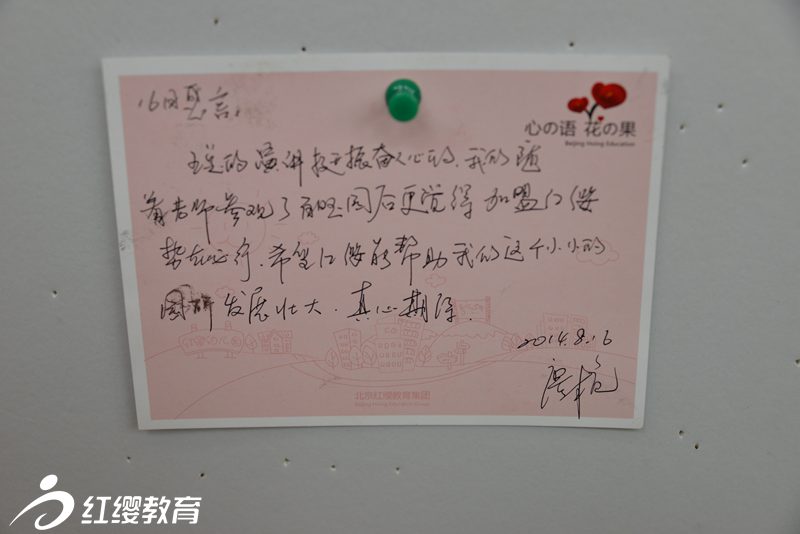 心の语 花の果
Beijing Hoing Education
16日感言：
王总的演讲挺振奋人心的，我们随
着老师参观了百旺园后更觉得加盟红缨
势在必行，希望红缨能帮助我们这个小小的
园所发展壮大，真心期待。
2014.8.16
北京红缨教育集团
Beijing Hoing Education Group
红缨教育